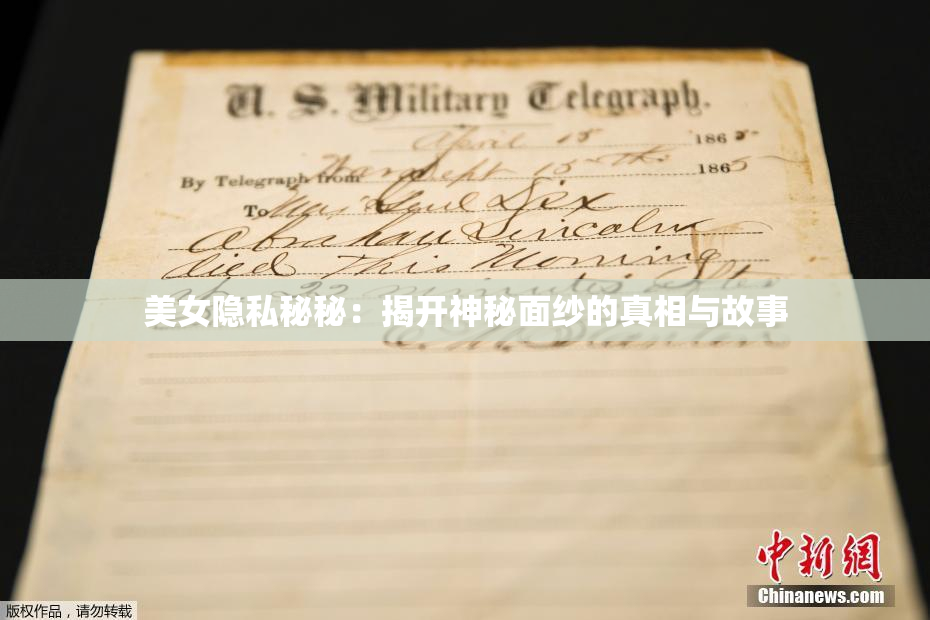 U. S. Military Telegraph.
April 15 1865
By Telegraph from War Dept 15th 1865
To Maj Genl Dix
Abraham Lincoln
died This Morning
at 22 minutes after
美女隐私秘秘：揭开神秘面纱的真相与故事
E. M. Stanton
中新网
Chinanews.com
版权作品，请勿转载